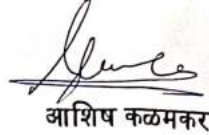 आशिष कळमकर